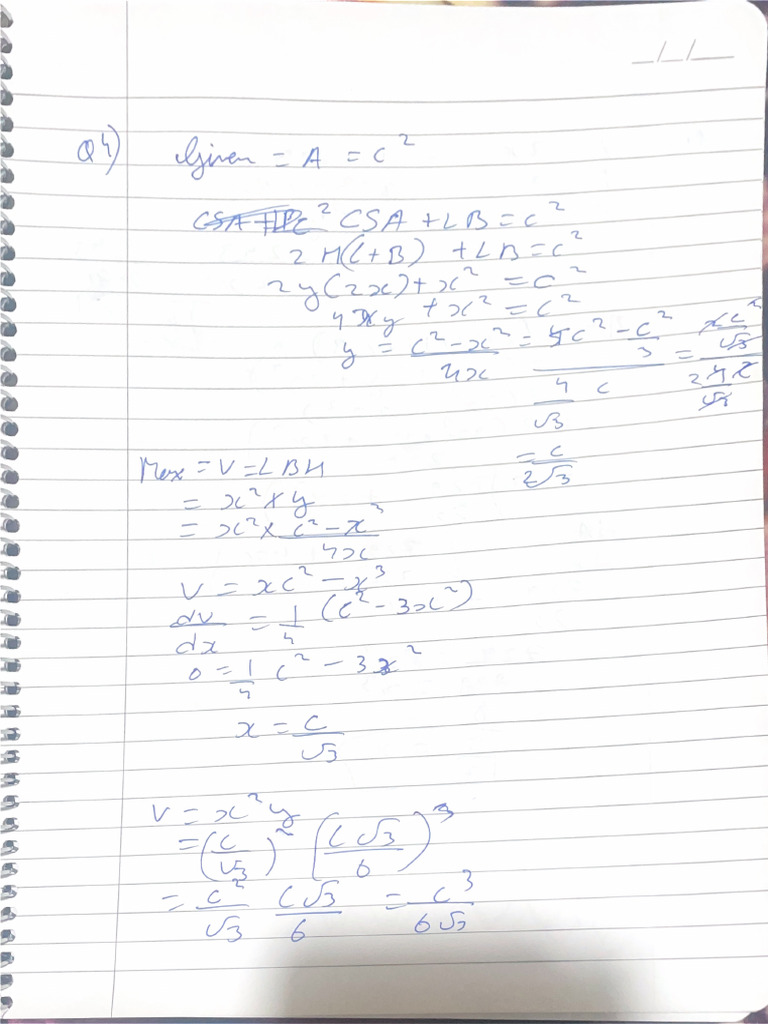 _/_/__
Q4) Given = A = c²
CSA + LB = c²
2H(L+B) + LB = c²
2y(2x) + x² = c²
4xy + x² = c²
y = (c² - x²)/4x = (c² - c²/3)/(4/√3 c) = 
= c/2√3
Max = V = LBH
= x² × y
= x² × (c² - x²)/4x
V = xc² - x³
dv/dx = 1/4 (c² - 3x²)
0 = 1/4 c² - 3x²
x = c/√3
V = x²y
= (c/√3)² (c√3/6)³
= c²/√3 c√3/6 = c³/6√3